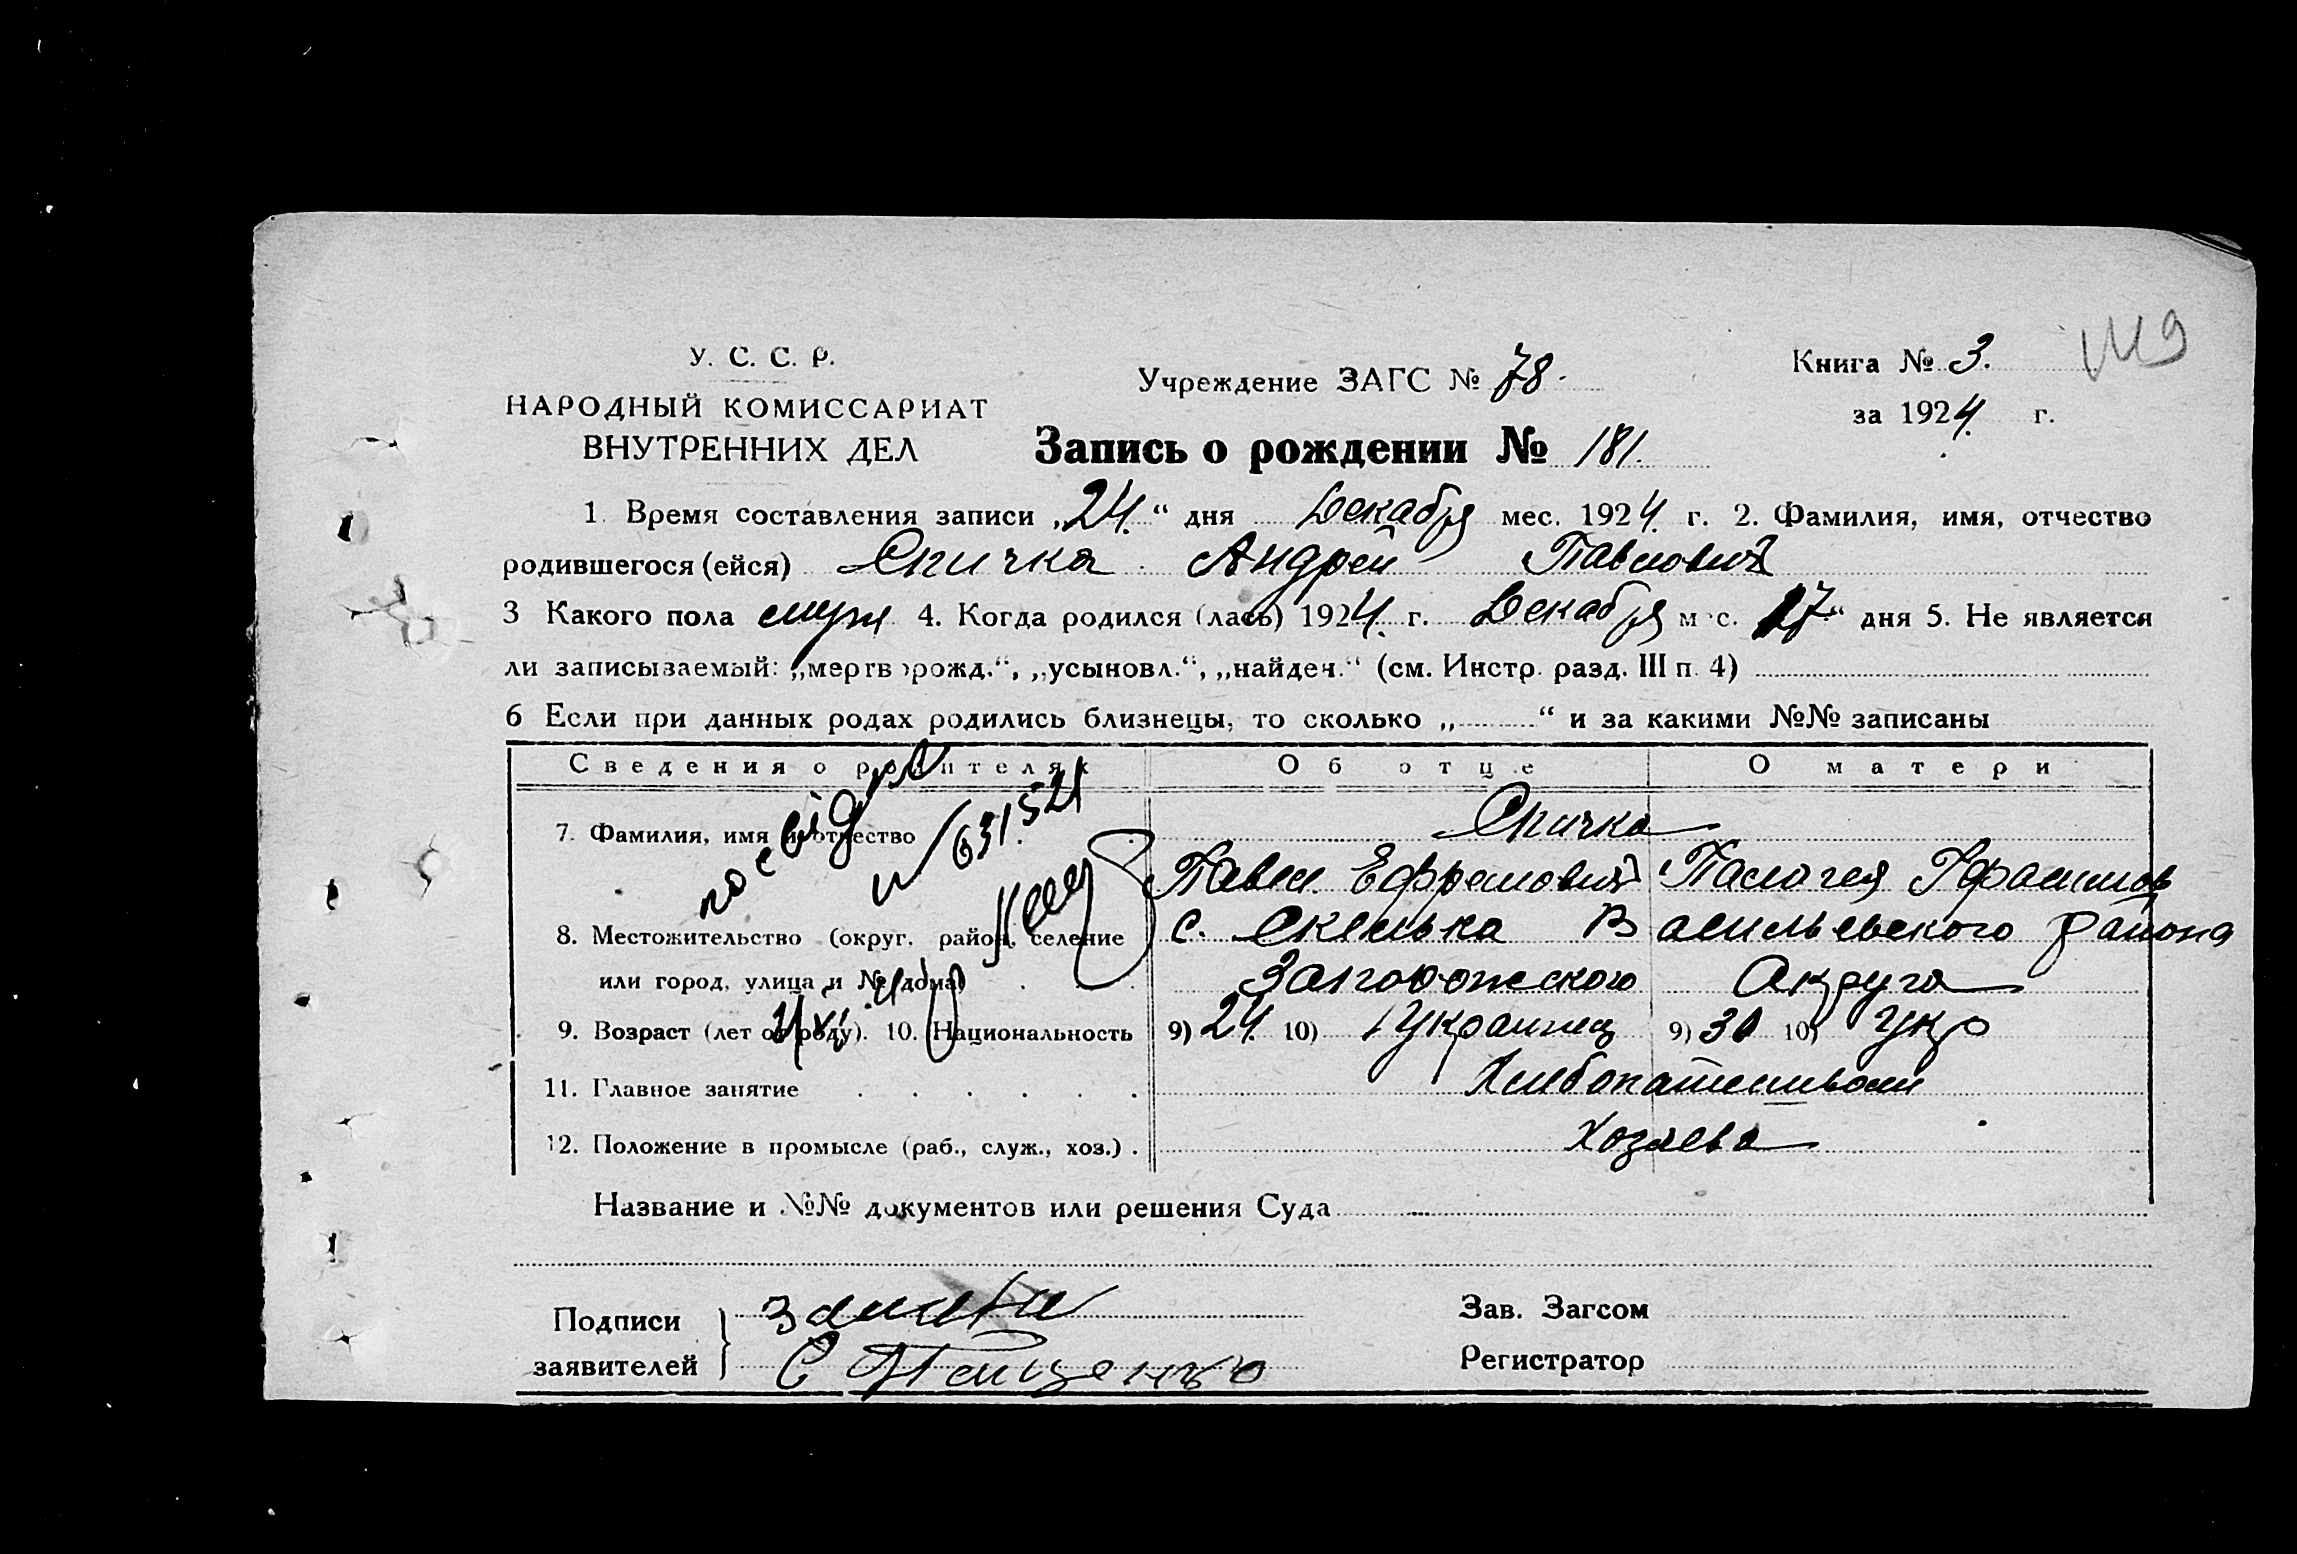 У. С. С. Р.
НАРОДНЫЙ КОМИССАРИАТ
ВНУТРЕННИХ ДЕЛ
Учреждение ЗАГС № 78.
Книга № 3.
за 1924. г.
Запись о рождении № 181.
1. Время составления записи „24.“ дня Декабря мес. 1924. г. 2. Фамилия, имя, отчество
родившегося (ейся) Спичка Андрей Павлович
3 Какого пола муж 4. Когда родился (лась) 1924. г. Декабря мес. 17“ дня 5. Не является
ли записываемый: „мертворожд.“, „усыновл.“, „найден.“ (см. Инстр. разд. III п. 4)
6 Если при данных родах родились близнецы, то сколько „ “ и за какими №№ записаны
Сведения о родителях Об отце О матери
7. Фамилия, имя и отчество Спичка
Павел Ефремович Палогея
8. Местожительство (округ, район, селение с. Скелька Васильевского района
или город, улица и № дома) Запорожского Акруга
9. Возраст (лет от роду). 10. Национальность 9) 24. 10) Украинец 9) 30 10) Укр
11. Главное занятие
12. Положение в промысле (раб., служ., хоз.) . Хозяева
631521
Название и №№ документов или решения Суда
Подписи
заявителей
Зав. Загсом
Регистратор